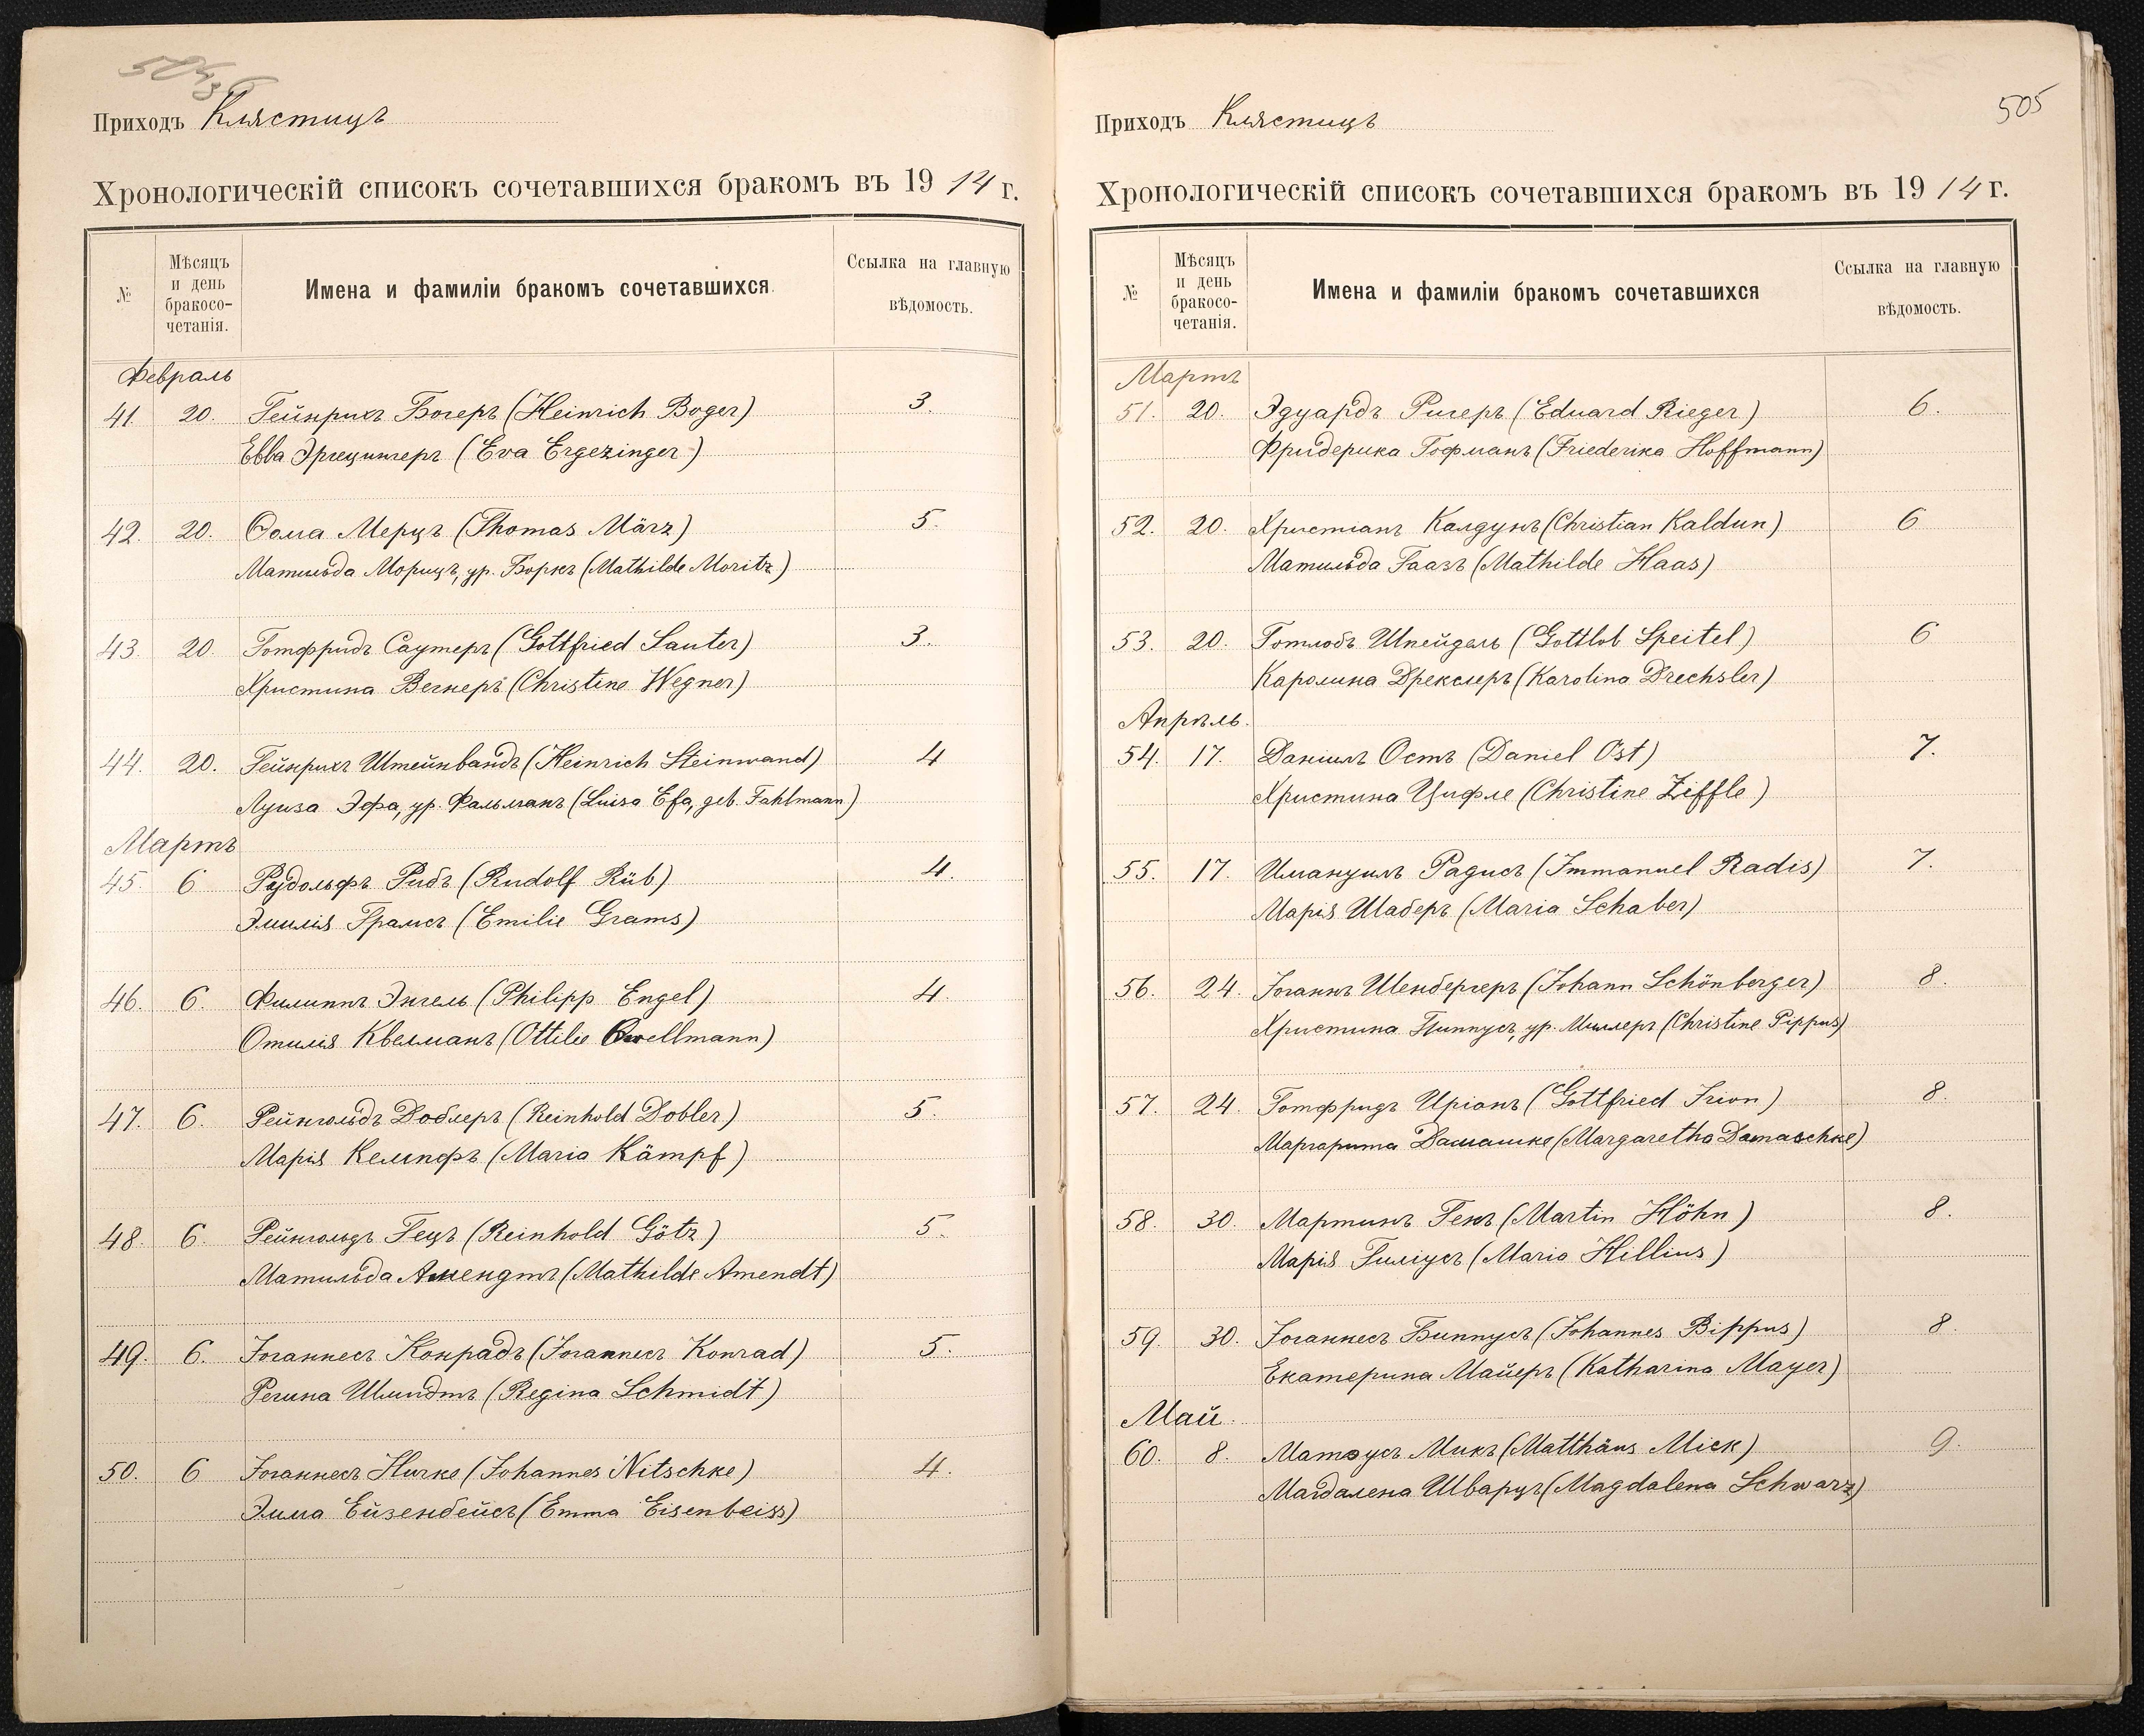 Приходъ Клястицъ
Хронологическій списокъ сочетавшихся бракомъ въ 1914 г.
№
Мѣсяцъ
и день
бракосо-
четанія.
Имена и фамиліи бракомъ сочетавшихся.
Ссылка на главную
вѣдомость.
Февраль
41. 20. Гейнрихъ Богеръ (Heinrich Boger) 3.
Евва Эргецингеръ (Eva Ergezinger)
42. 20. Ѳома Мерцъ (Thomas März) 5.
Матильда Морицъ, ур. Боркъ (Mathilde Moritz)
43. 20. Готфридъ Саутеръ (Gottfried Sauter) 3.
Христина Вегнеръ (Christine Wegner)
44. 20. Гейнрихъ Штейнвандъ (Heinrich Steinwand) 4
Луиза Эфа, ур. Фальманъ (Luisa Efa, geb. Fahlmann)
Мартъ
45. 6 Рудольфъ Рибъ (Rudolf Rüb) 4.
Эмилія Грамсъ (Emilie Grams)
46. 6. Филиппъ Энгель (Philipp Engel) 4.
Отилія Квелманъ (Ottilie Qwellmann)
47. 6. Рейнгольдъ Доблеръ (Reinhold Dobler) 5.
Марія Кемпфъ (Maria Kämpf)
48. 6. Рейнгольдъ Гецъ (Reinhold Götz) 5.
Матильда Амендтъ (Mathilde Amendt)
49. 6. Іоганнесъ Конрадъ (Іоганнесъ Konrad) 5.
Регина Шмидтъ (Regina Schmidt)
50. 6 Іоганнесъ Ничке (Johannes Nitschke) 4.
Эмма Ейзенбейсъ (Emma Eisenbeiss)
505
Приходъ Клястицъ
Хронологическій списокъ сочетавшихся бракомъ въ 1914 г.
№
Мѣсяцъ
и день
бракосо-
четанія.
Имена и фамиліи бракомъ сочетавшихся
Ссылка на главную
вѣдомость.
Мартъ
51. 20. Эдуардъ Ригеръ (Eduard Rieger) 6.
Фридерика Гофманъ (Friederika Hoffmann)
52. 20. Христіанъ Калдунъ (Christian Kaldun) 6
Матильда Гаазъ (Mathilde Haas)
53. 20. Готлобъ Шпейдель (Gottlob Speitel) 6
Каролина Дрекслеръ (Karolina Drechsler)
Апрѣль.
54. 17. Даніилъ Остъ (Daniel Ost) 7.
Христина Цифле (Christine Ziffle)
55. 17. Имануилъ Радисъ (Immanuel Radis) 7.
Марія Шаберъ (Maria Schaber)
56. 24. Іоганнъ Шенбергеръ (Johann Schönberger) 8.
Христина Пиппусъ, ур. Миллеръ (Christine Pippus)
57. 24. Готфридъ Иріонъ (Gottfried Irion) 8.
Маргарита Дамашке (Margaretha Damaschke)
58. 30. Мартинъ Генъ (Martin Höhn) 8.
Марія Гиліусъ (Maria Hillius)
59. 30. Іоганнесъ Биппусъ (Johannes Bippus) 8.
Екатерина Майеръ (Katharina Mayer)
Май.
60. 8. Матѳусъ Микъ (Matthäus Mick) 9.
Магдалена Шварцъ (Magdalena Schwarz)